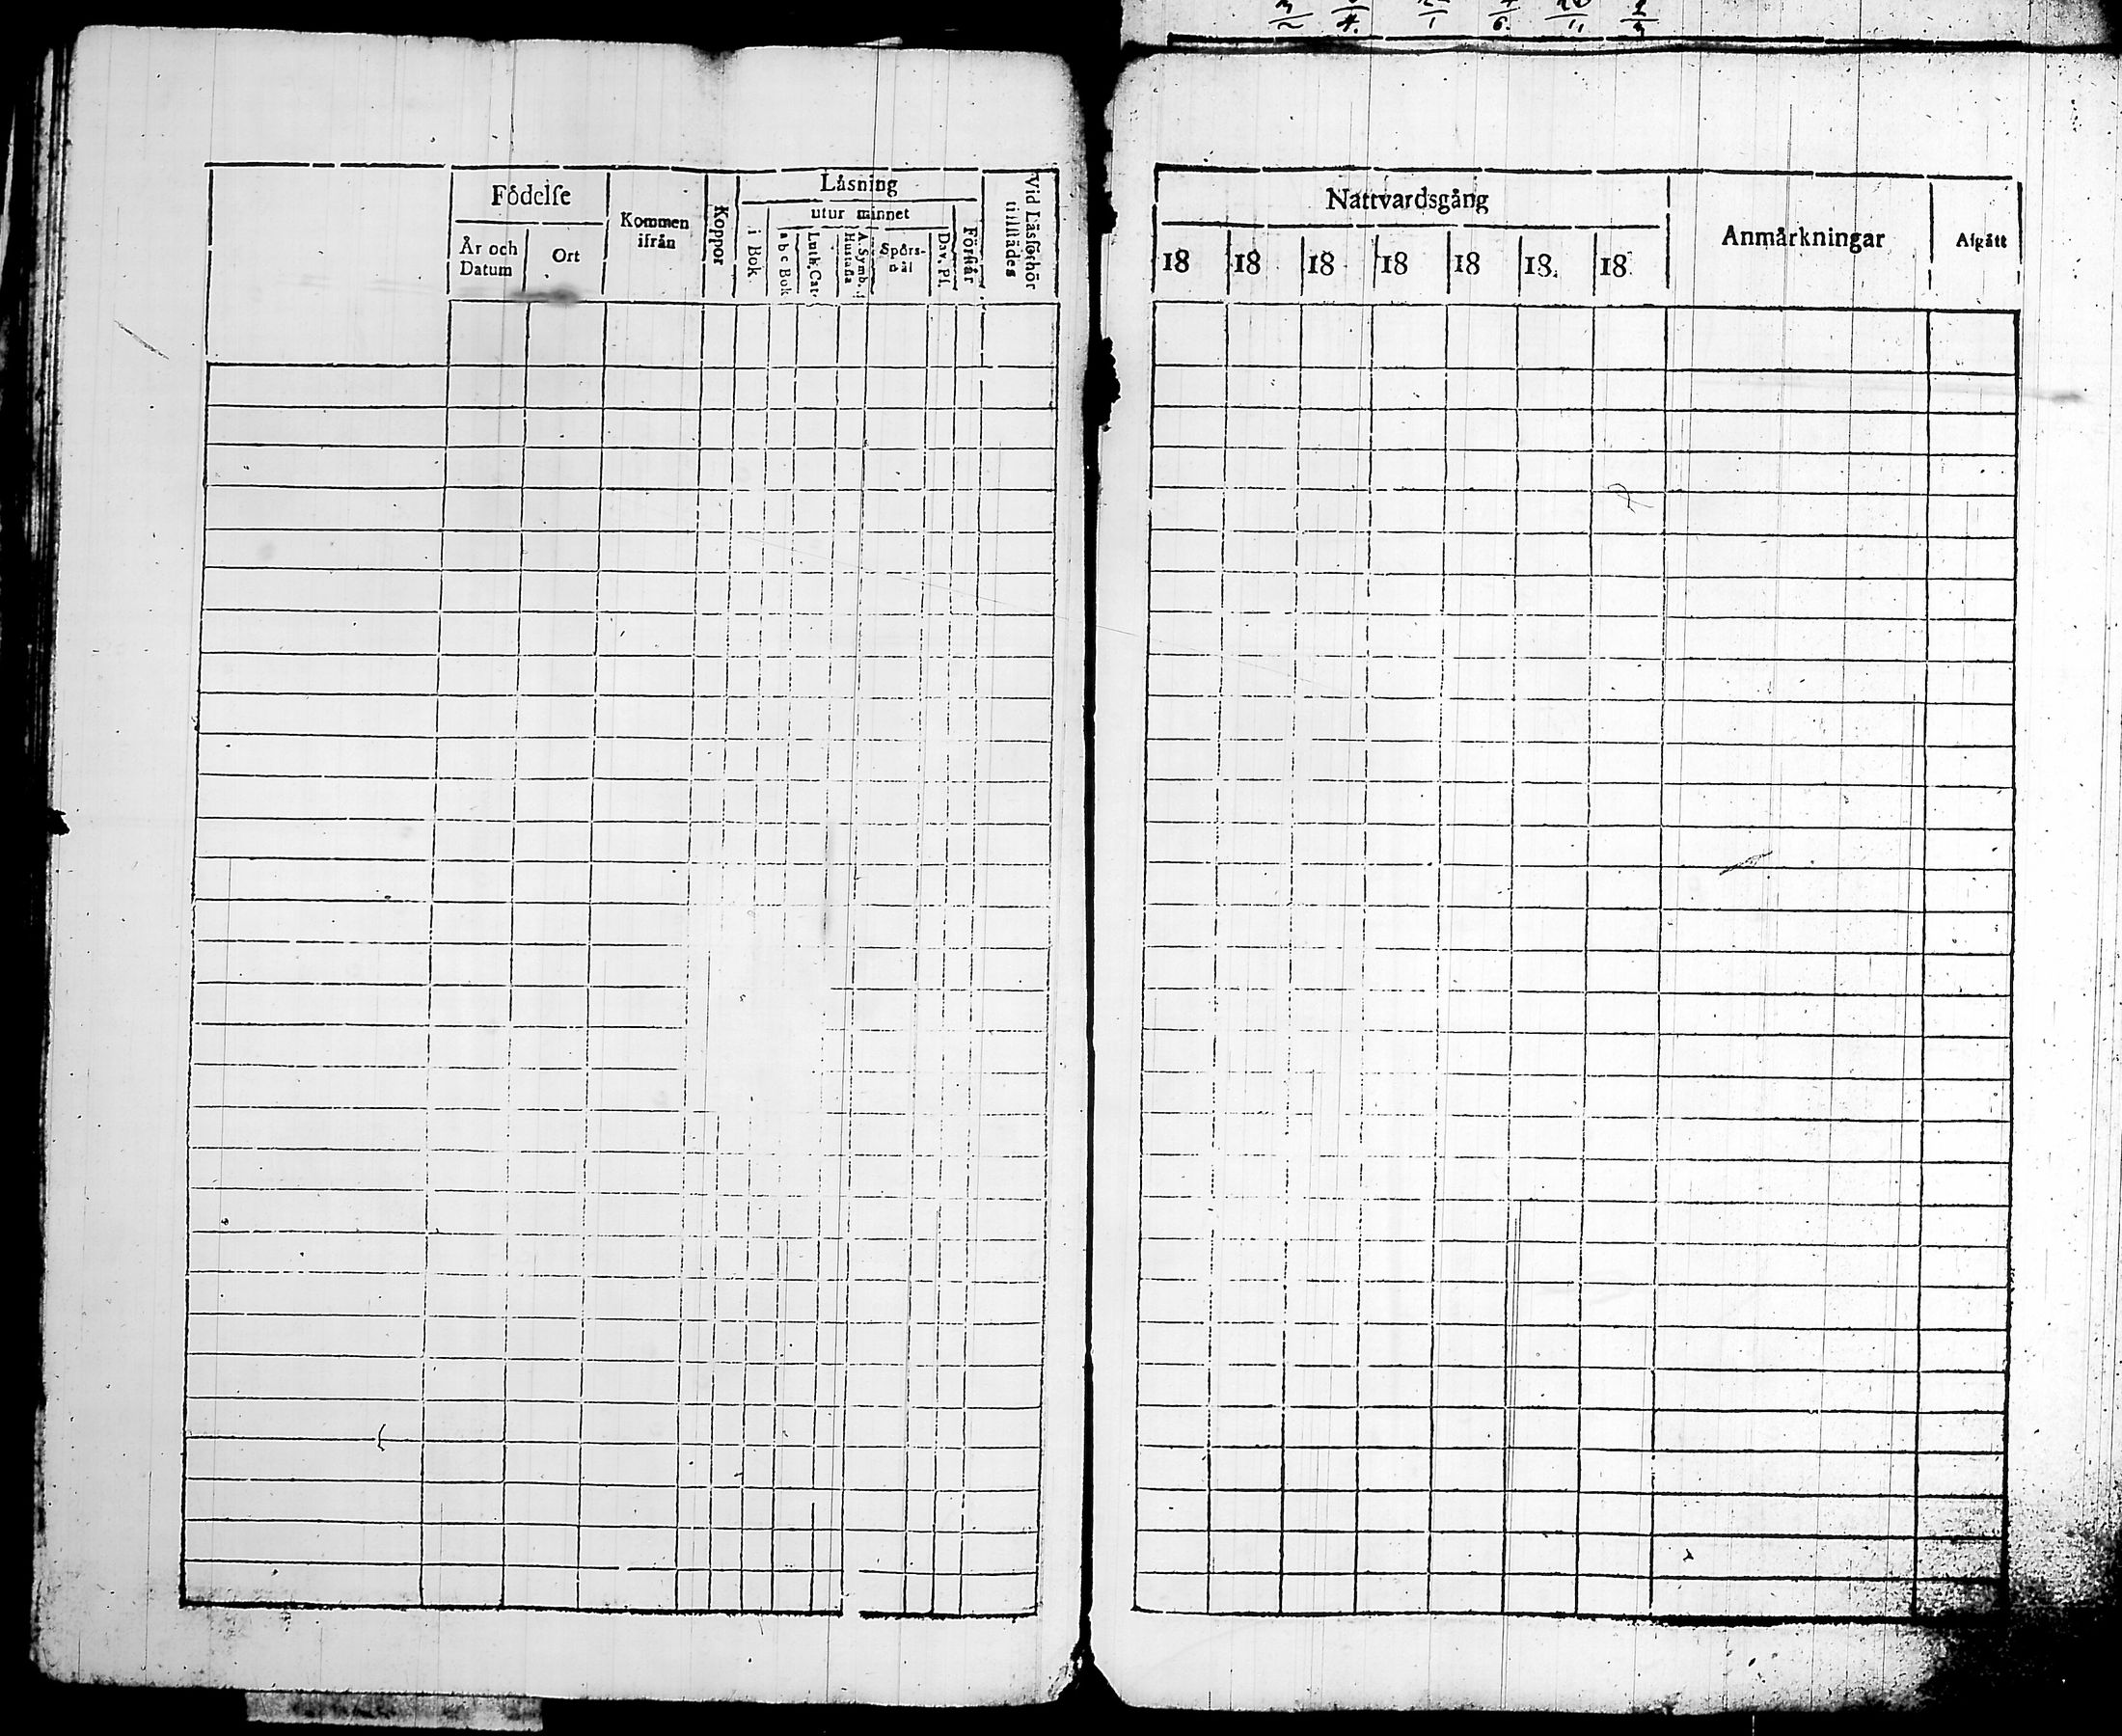 Födelſe
År och Datum
Ort
Kommen ifrån
Koppor
Läsning
i Bok
utur minnet
a b c Bok
Luth. Cat.
A. Symb.
Huſtafla
Spörs-
mål
Dav. Pſ.
Förſtår
Vid Läsförhör
tillſtädes
Nattvardsgång
18 18 18 18 18 18. 18
Anmärkningar
Afgått